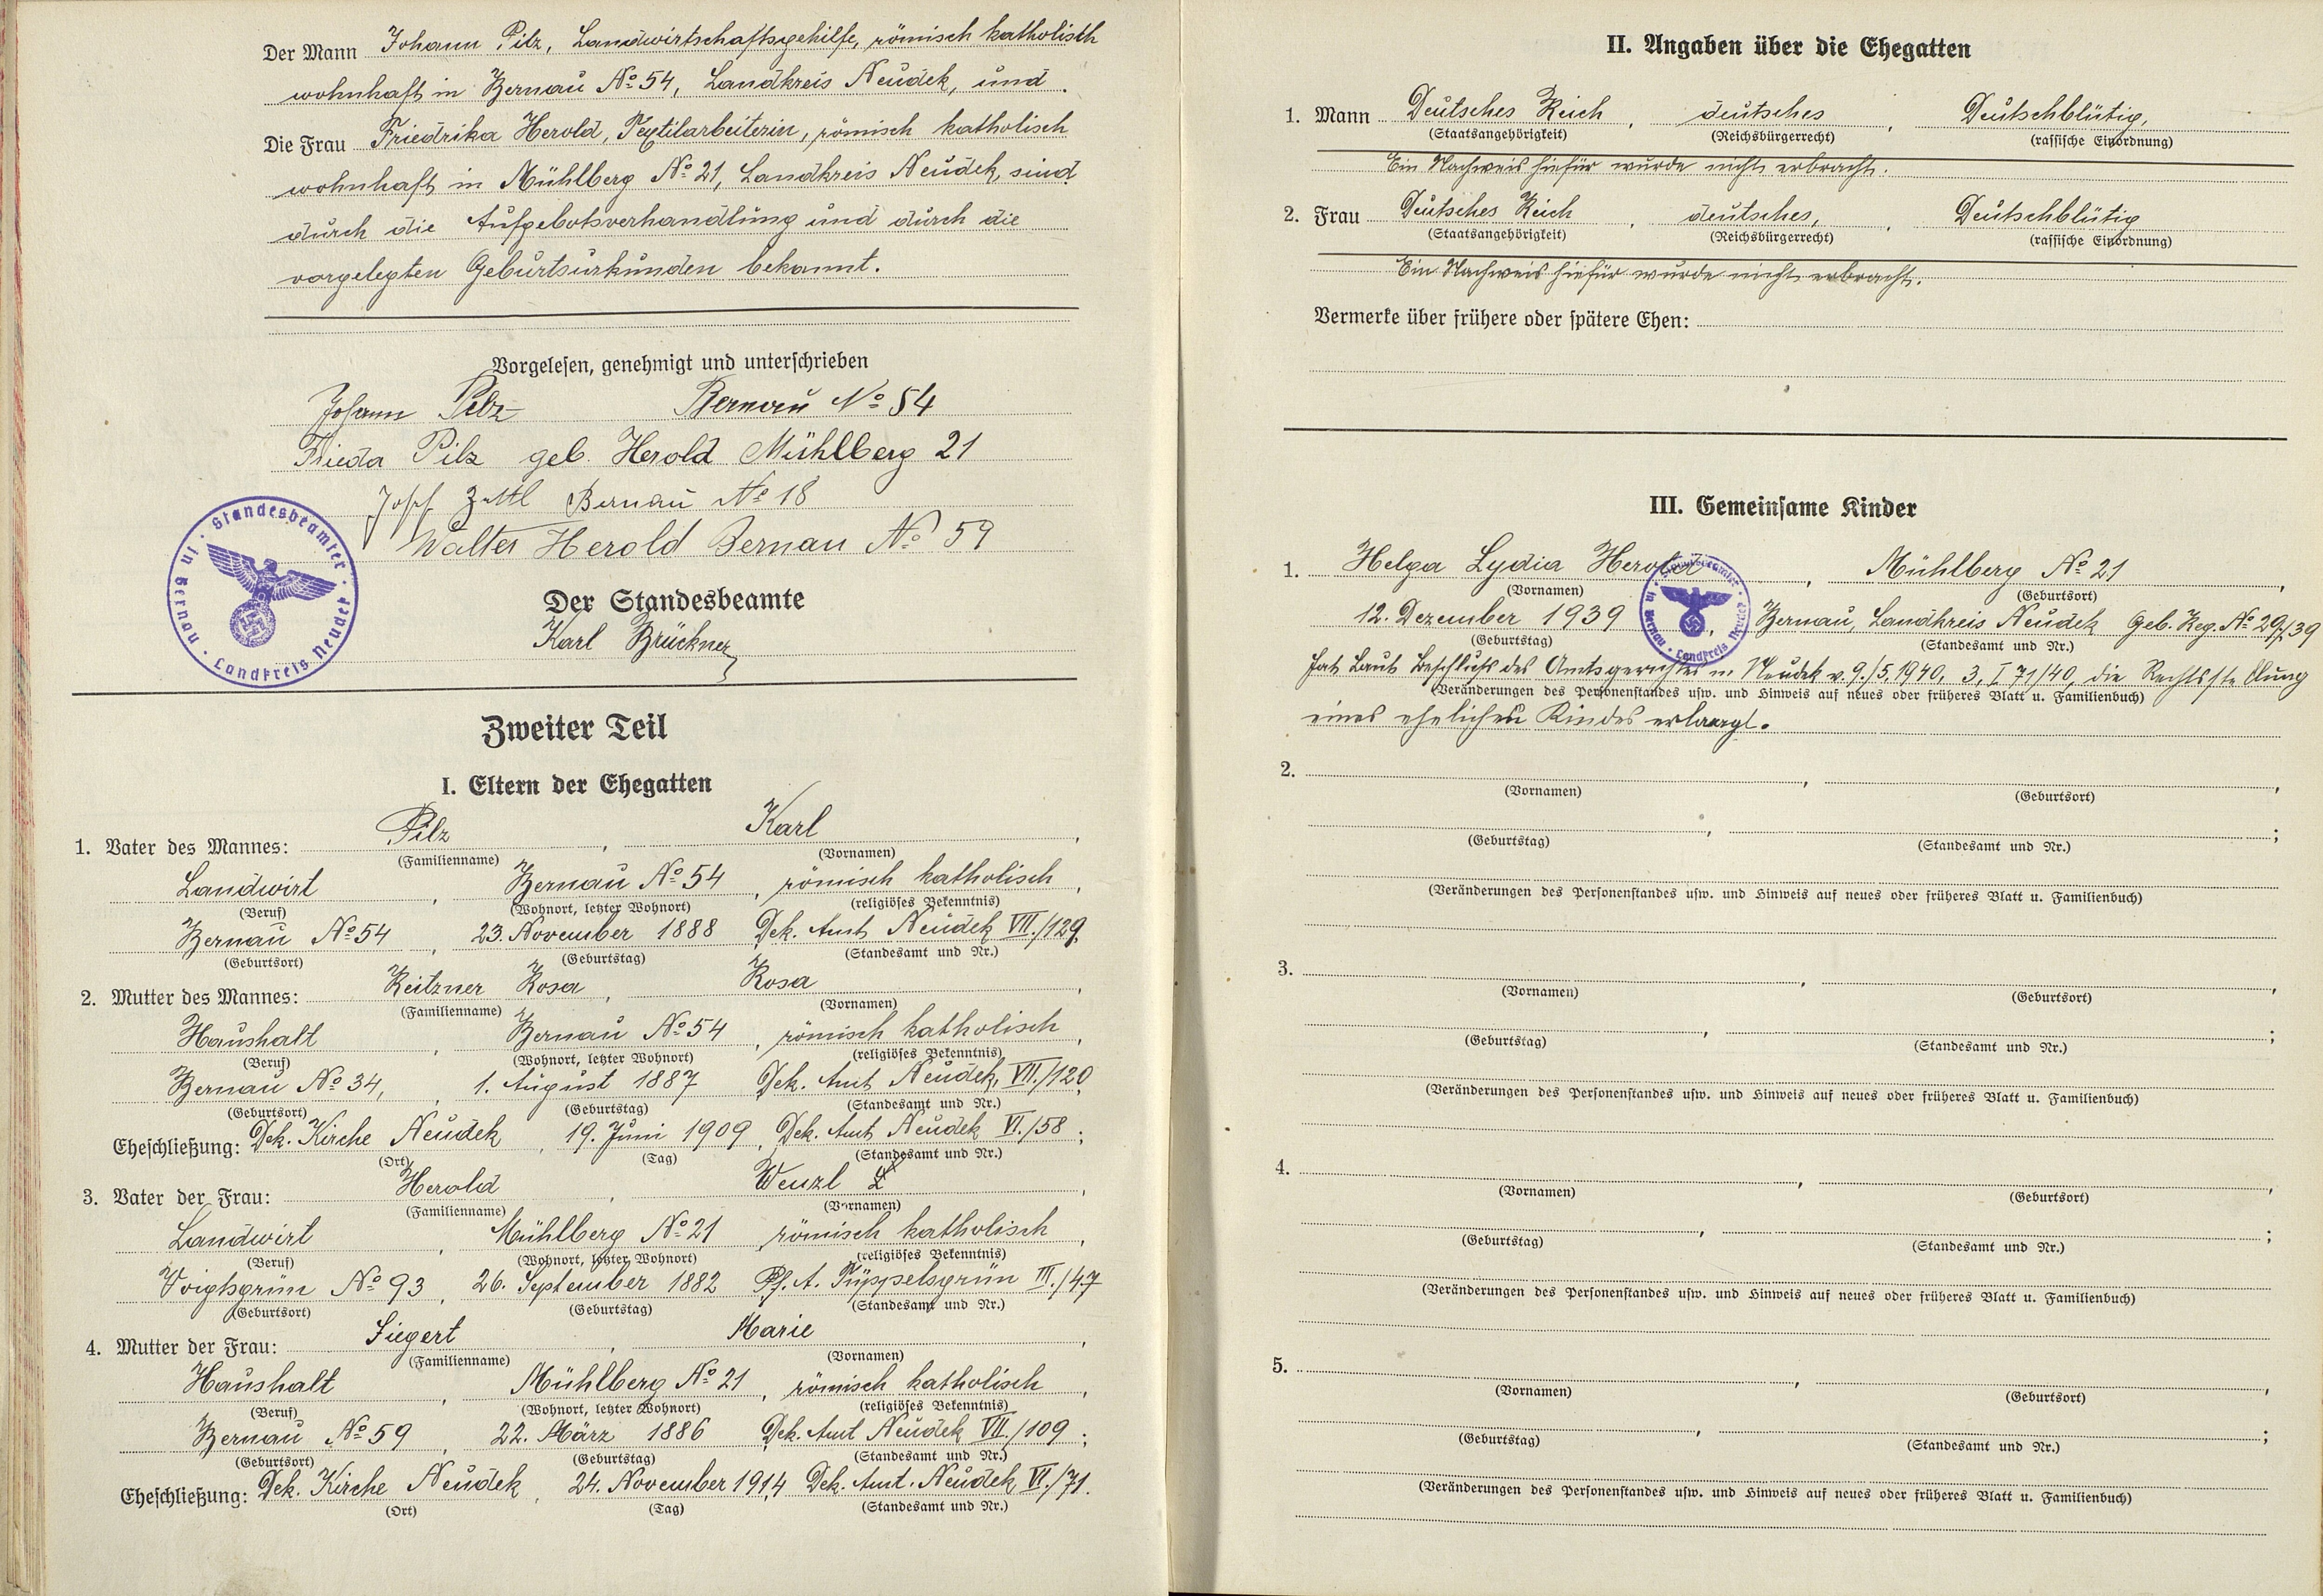 Der Mann Johann Pilz, Landwirtschaftsgehilfe, römisch katholisch
wohnhaft in Bernau No 54, Landkreis Neudek, und
Die Frau Friedrika Herold, Textilarbeiterin, römisch katholisch
wohnhaft in Mühlberg No 21, Landkreis Neudek, sind
durch die Aufgebotsverhandlung und durch die
vorgelegten Geburtsurkunden bekannt.
Vorgelesen, genehmigt und unterschrieben
Johann Pilz Bernau No 54
Frieda Pilz geb. Herold Mühlberg 21
Josef Zettl Bernau No 18
Walter Herold Bernau No 59
Standesbeamter in Bernau · Landkreis Neudek
Der Standesbeamte
Karl Brückner
Zweiter Teil
I. Eltern der Ehegatten
1. Vater des Mannes: Pilz, Karl,
(Familienname) (Vornamen)
Landwirt, Bernau No 54, römisch katholisch,
(Beruf) (Wohnort, letzter Wohnort) (religiöses Bekenntnis)
Bernau No 54, 23. November 1888 Dek. Amt Neudek VII./129,
(Geburtsort) (Geburtstag) (Standesamt und Nr.)
2. Mutter des Mannes: Reitzner Rosa, Rosa,
(Familienname) (Vornamen)
Haushalt, Bernau No 54, römisch katholisch,
(Beruf) (Wohnort, letzter Wohnort) (religiöses Bekenntnis)
Bernau No 34, 1. August 1887 Dek. Amt Neudek, VII./120;
(Geburtsort) (Geburtstag) (Standesamt und Nr.)
Eheschließung: Dek. Kirche Neudek, 19. Juni 1909, Dek. Amt Neudek VI./58;
(Ort) (Tag) (Standesamt und Nr.)
3. Vater der Frau: Herold, Wenzl
(Familienname) (Vornamen)
Landwirt, Mühlberg No 21, römisch katholisch,
(Beruf) (Wohnort, letzter Wohnort) (religiöses Bekenntnis)
Voigtsgrün No 93, 26. September 1882 Pf. A. Püppelsgrün III./47
(Geburtsort) (Geburtstag) (Standesamt und Nr.)
4. Mutter der Frau: Siegert, Marie,
(Familienname) (Vornamen)
Haushalt, Mühlberg No 21, römisch katholisch,
(Beruf) (Wohnort, letzter Wohnort) (religiöses Bekenntnis)
Bernau No 59, 22. März 1886 Dek. Amt Neudek VII./109;
(Geburtsort) (Geburtstag) (Standesamt und Nr.)
Eheschließung: Dek. Kirche Neudek, 24. November 1914 Dek. Amt. Neudek, VI./71.
(Ort) (Tag) (Standesamt und Nr.)
II. Angaben über die Ehegatten
1. Mann Deutsches Reich, deutsches, Deutschblütig,
(Staatsangehörigkeit) (Reichsbürgerrecht) (rassische Einordnung)
Ein Nachweis hiefür wurde nicht erbracht.
2. Frau Deutsches Reich, deutsches, Deutschblütig
(Staatsangehörigkeit) (Reichsbürgerrecht) (rassische Einordnung)
Ein Nachweis hiefür wurde nicht erbracht.
Vermerke über frühere oder spätere Ehen:
III. Gemeinsame Kinder
1. Helga Lydia Herold, Mühlberg No 21,
(Vornamen) (Geburtsort)
12. Dezember 1939, Bernau, Landkreis Neudek Geb. Reg. No 29/39
(Geburtstag) (Standesamt und Nr.)
Standesbeamter in Bernau · Landkreis Neudek
hat laut Beschluß des Amtsgerichtes in Neudek v. 9./5.1940, 3, I 71/40, die Rechtsstellung
(Veränderungen des Personenstandes usw. und Hinweis auf neues oder früheres Blatt u. Familienbuch)
eines ehelichen Kindes erlangt.
2.
(Vornamen) (Geburtsort)
(Geburtstag) (Standesamt und Nr.)
(Veränderungen des Personenstandes usw. und Hinweis auf neues oder früheres Blatt u. Familienbuch)
3.
(Vornamen) (Geburtsort)
(Geburtstag) (Standesamt und Nr.)
(Veränderungen des Personenstandes usw. und Hinweis auf neues oder früheres Blatt u. Familienbuch)
4.
(Vornamen) (Geburtsort)
(Geburtstag) (Standesamt und Nr.)
(Veränderungen des Personenstandes usw. und Hinweis auf neues oder früheres Blatt u. Familienbuch)
5.
(Vornamen) (Geburtsort)
(Geburtstag) (Standesamt und Nr.)
(Veränderungen des Personenstandes usw. und Hinweis auf neues oder früheres Blatt u. Familienbuch)